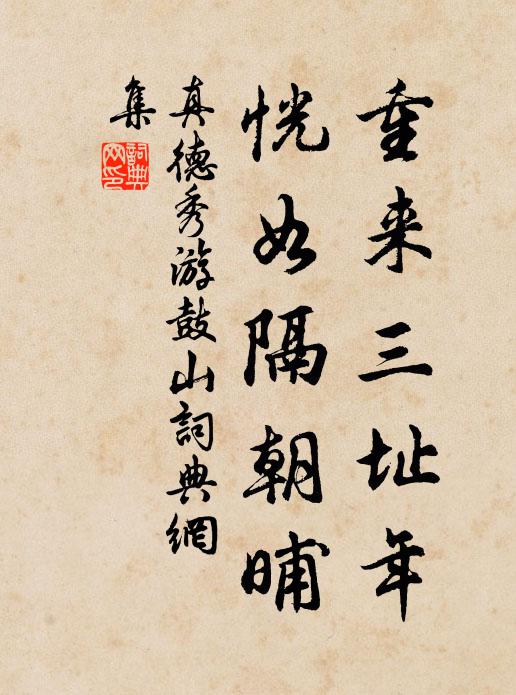 重来三址年
恍如隔朝晡
真德秀游鼓山詞典網
集
詞典網印